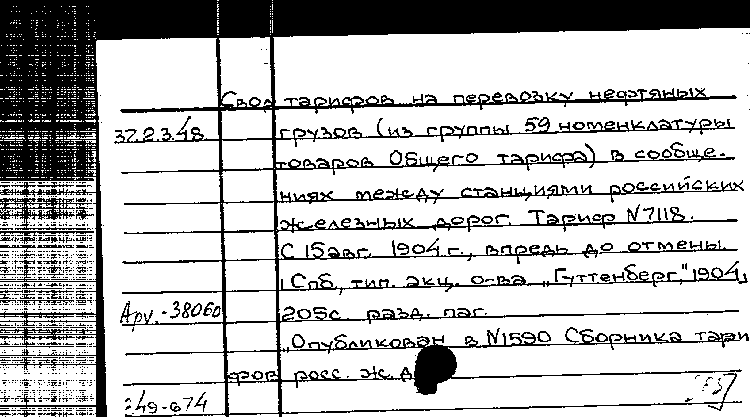 Свод тарифов на перевозку нефтяных
37.2.348
грузов (из группы 59 номенклатуры
товаров Общего тарифа) в сообще-
ниях между станциями российских
железных дорог. Тариф N7118.
С 15 авг. 1904 г., впредь до отмены.
Спб, тип. акц. о-ва „Гуттенберг," 1904,
Арх.-38060
205с. разд. паг.
„Опубликован в N1590 Сборника тари
фов росс. ж. д
49-674